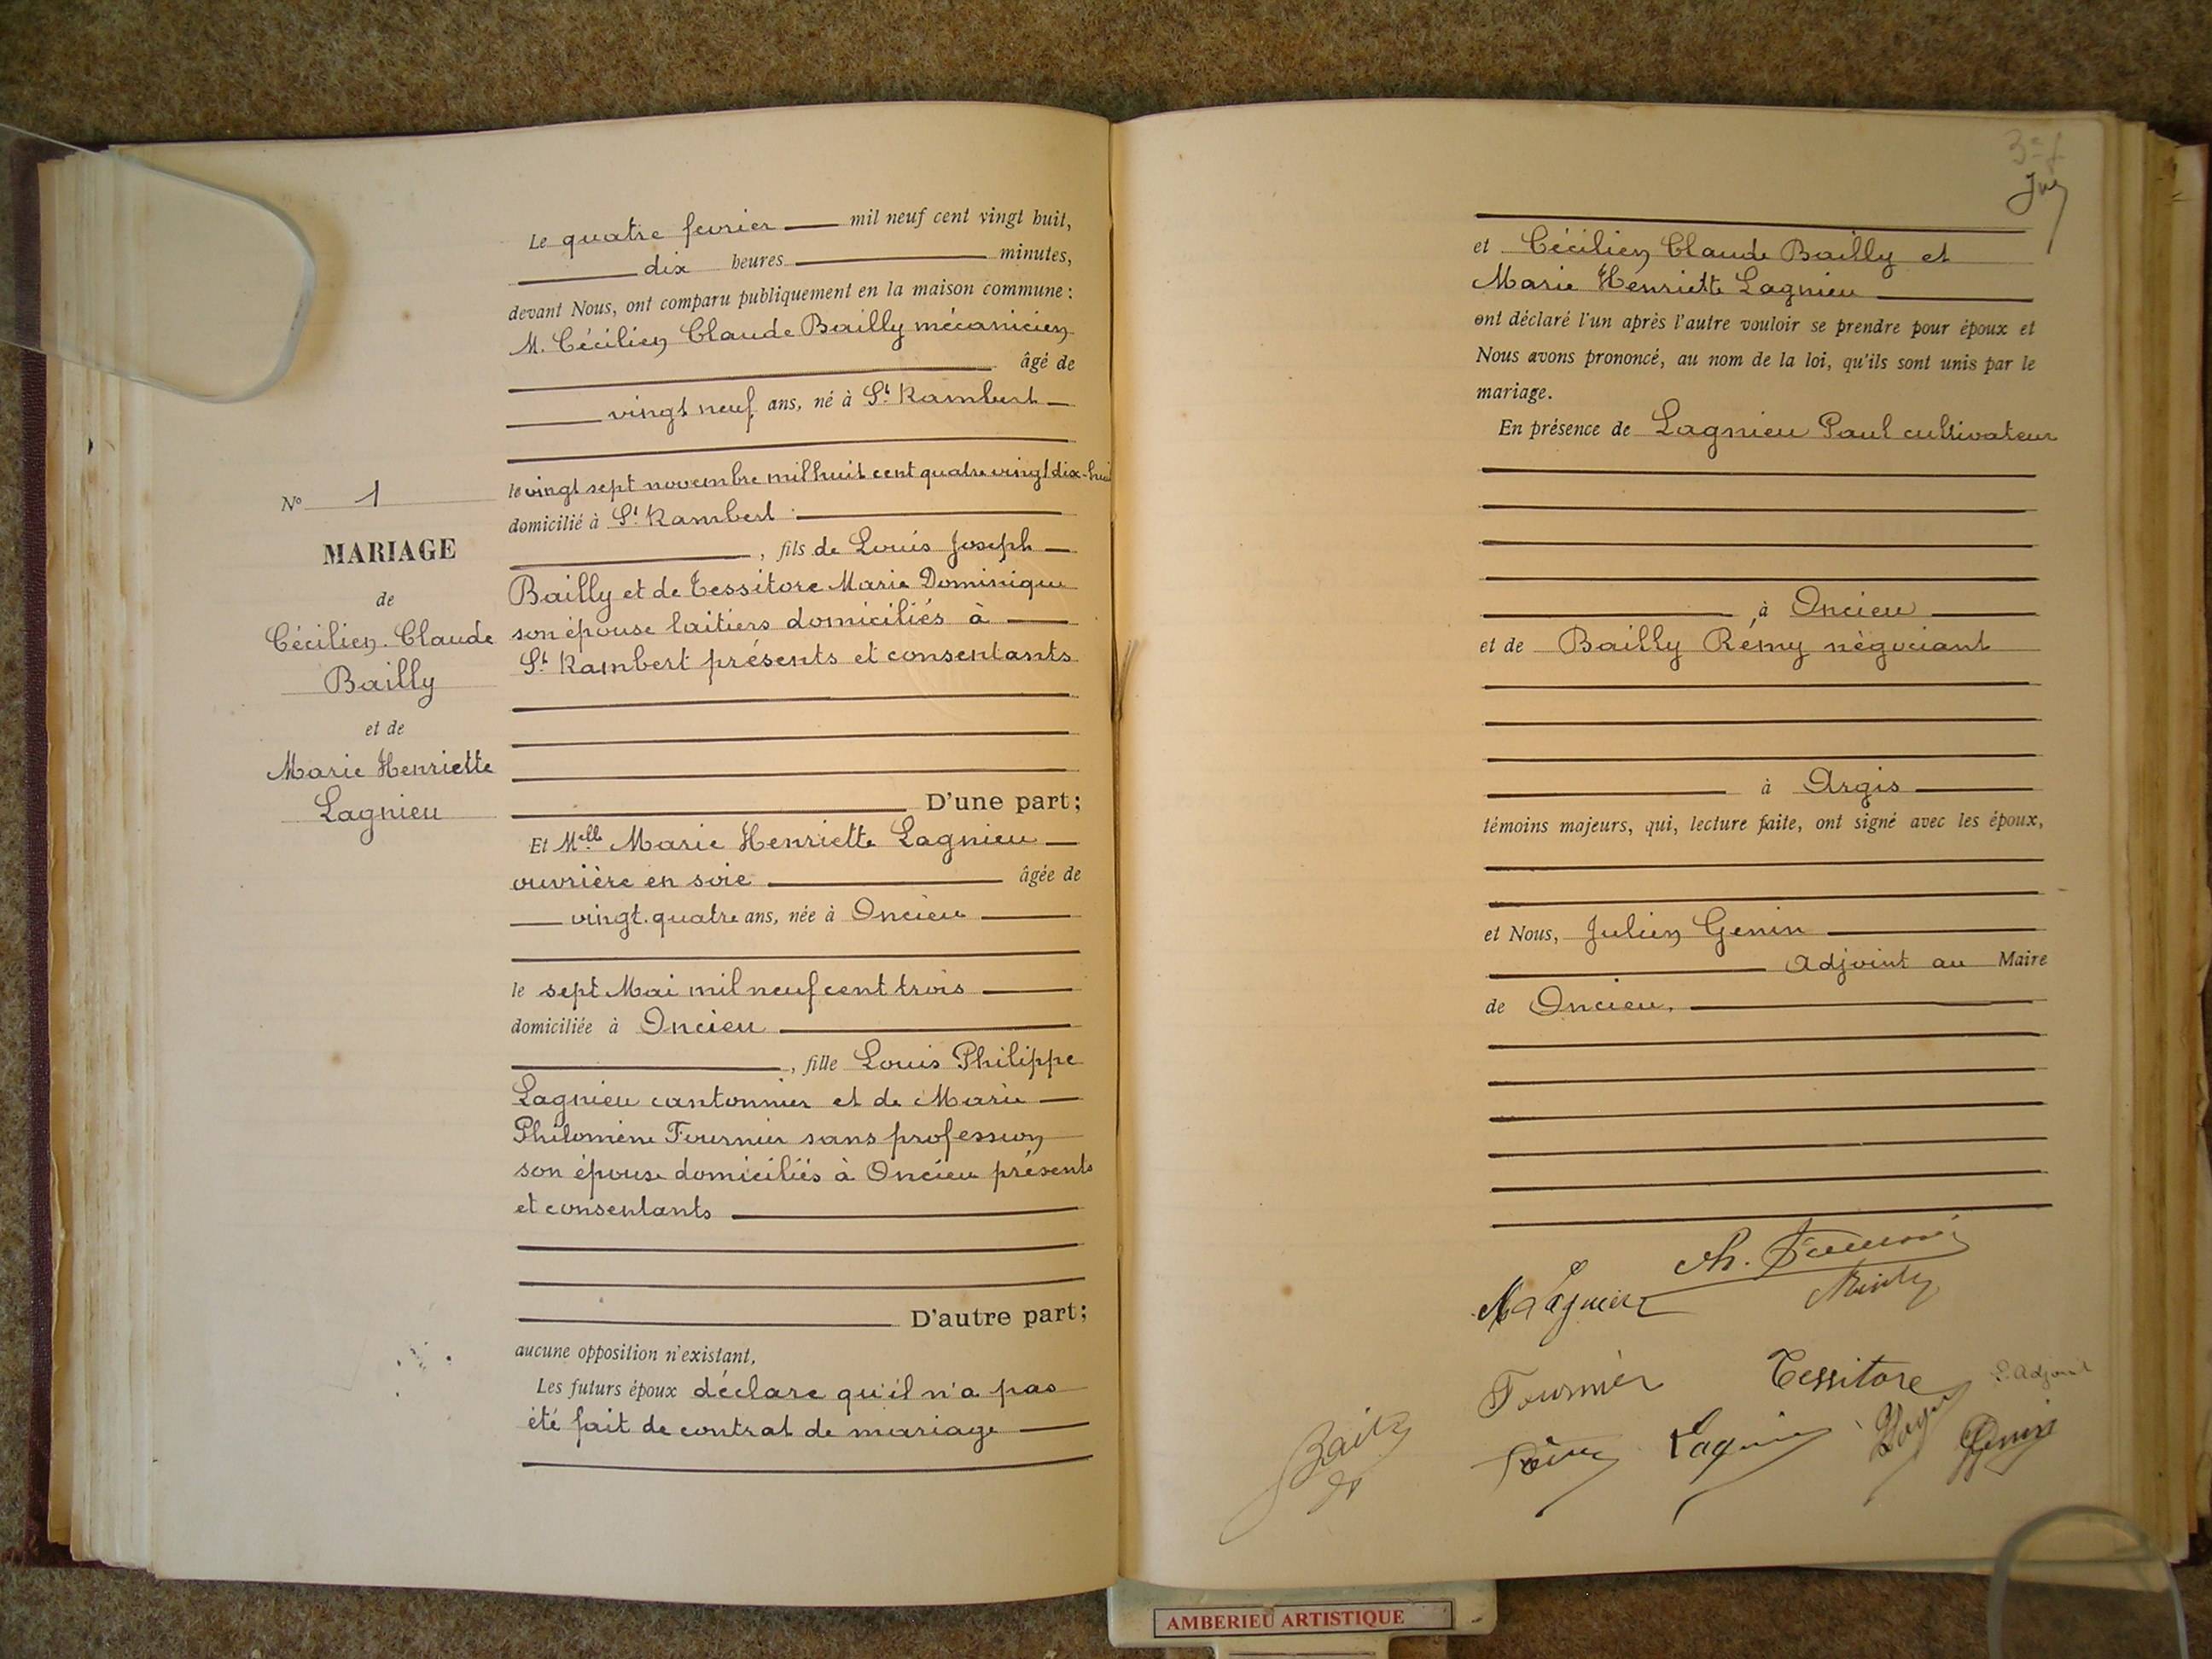 N° 1
MARIAGE
de
Cécilien. Claude
Bailly
et de
Marie Henriette
Lagnieu
Le quatre fevrier mil neuf cent vingt huit,
dix heures minutes,
devant Nous, ont comparu publiquement en la maison commune :
M. Cécilien Claude Bailly mécanicien
âgé de
vingt neuf ans, né à St Rambert
le vingt sept novembre mil huit cent quatre vingt dix-huit
domicilié à St Rambert
, fils de Louis Joseph
Bailly et de Tessitore Marie Dominique
son épouse laitiers domiciliés à
St Rambert présents et consentants
D'une part;
Et Melle Marie Henriette Lagnieu
ouvrière en soie âgée de
vingt. quatre ans, née à Oncieu
le sept Mai mil neuf cent trois
domiciliée à Oncieu
, fille Louis Philippe
Lagnieu cantonnier et de Marie
Philomène Fournier sans profession
son épouse domiciliés à Oncieu présents
et consentants
D'autre part;
aucune opposition n'existant,
Les futurs époux déclare qu'il n'a pas
été fait de contrat de mariage
et Cécilien Claude Bailly et
Marie Henriette Lagnieu
ont déclaré l'un après l'autre vouloir se prendre pour époux et
Nous avons prononcé, au nom de la loi, qu'ils sont unis par le
mariage.
En présence de Lagnieu Paul cultivateur
à Oncieu
et de Bailly Rémy négociant
à Argis
témoins majeurs, qui, lecture faite, ont signé avec les époux,
et Nous, Julien Genin
Adjoint au Maire
de Oncieu.
M Lagnieu
Fournier Tessitore L'Adjoint
Lagnieu Genin
AMBERIEU ARTISTIQUE